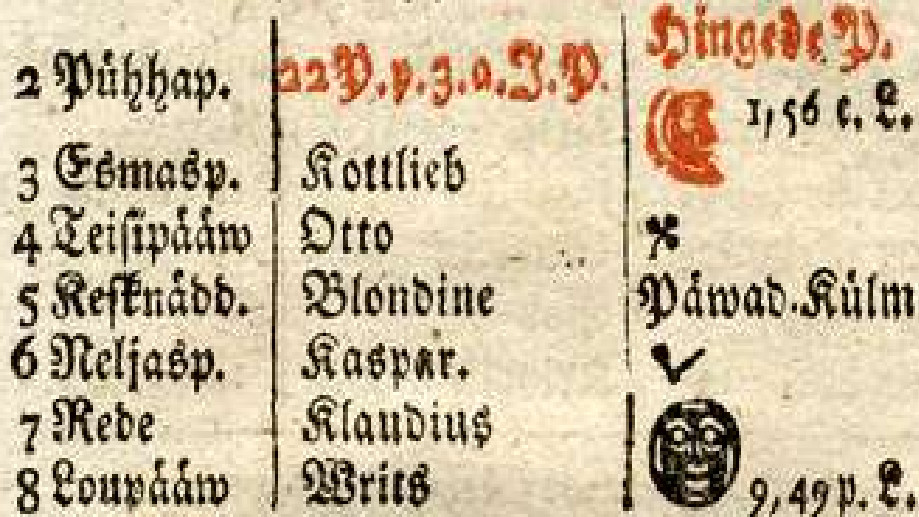 2 Pühhap. 22 P. p. 3. a. J. P. Hingede P.
1,56 e. L.
3 Esmasp. Kottlieb
4 Teisipääw Otto
5 Kesknädd. Blondine Päwad. Külm
6 Neljasp. Kaspar.
7 Rede Klaudius
8 Loupääw Writs 9,49 p. L.